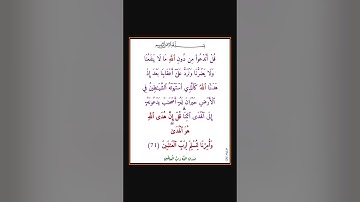 قُلْ أَنَدْعُوا۟ مِن دُونِ ٱللَّهِ مَا لَا يَنفَعُنَا
وَلَا يَضُرُّنَا وَنُرَدُّ عَلَىٰٓ أَعْقَابِنَا بَعْدَ إِذْ
هَدَىٰنَا ٱللَّهُ كَٱلَّذِى ٱسْتَهْوَتْهُ ٱلشَّيَـٰطِينُ فِى
ٱلْأَرْضِ حَيْرَانَ لَهُۥٓ أَصْحَـٰبٌ يَدْعُونَهُۥٓ
إِلَى ٱلْهُدَى ٱئْتِنَا ۗ قُلْ إِنَّ هُدَى ٱللَّهِ
هُوَ ٱلْهُدَىٰ ۖ
وَأُمِرْنَا لِنُسْلِمَ لِرَبِّ ٱلْعَـٰلَمِينَ (71)